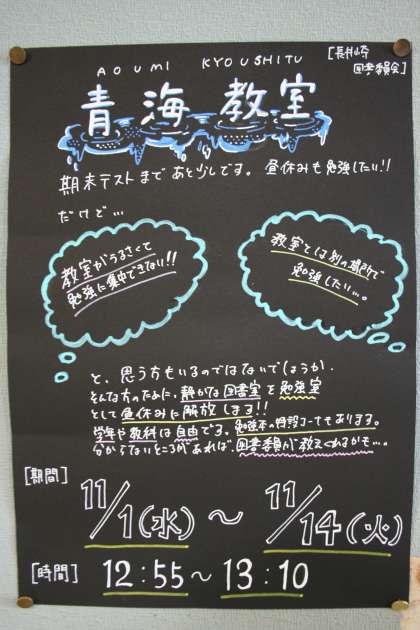 AOUMI KYOUSHITU
[長井崎
図書委員会]
青海教室
期末テストまであと少しです。昼休みも勉強したい!!
だけど…
教室がうるさくて
勉強に集中できない!!
教室とは別の場所で
勉強したい…。
と、思う方もいるのではないでしょうか.
そんな方のために、静かな図書室を勉強室
として昼休みに解放します!!
学年や教科は自由です。勉強本の特設コーナーもあります。
分からないところがあれば、図書委員が教えてくれるかも…。
[期間]
11/1(水)～11/14(火)
[時間] 12:55～13:10